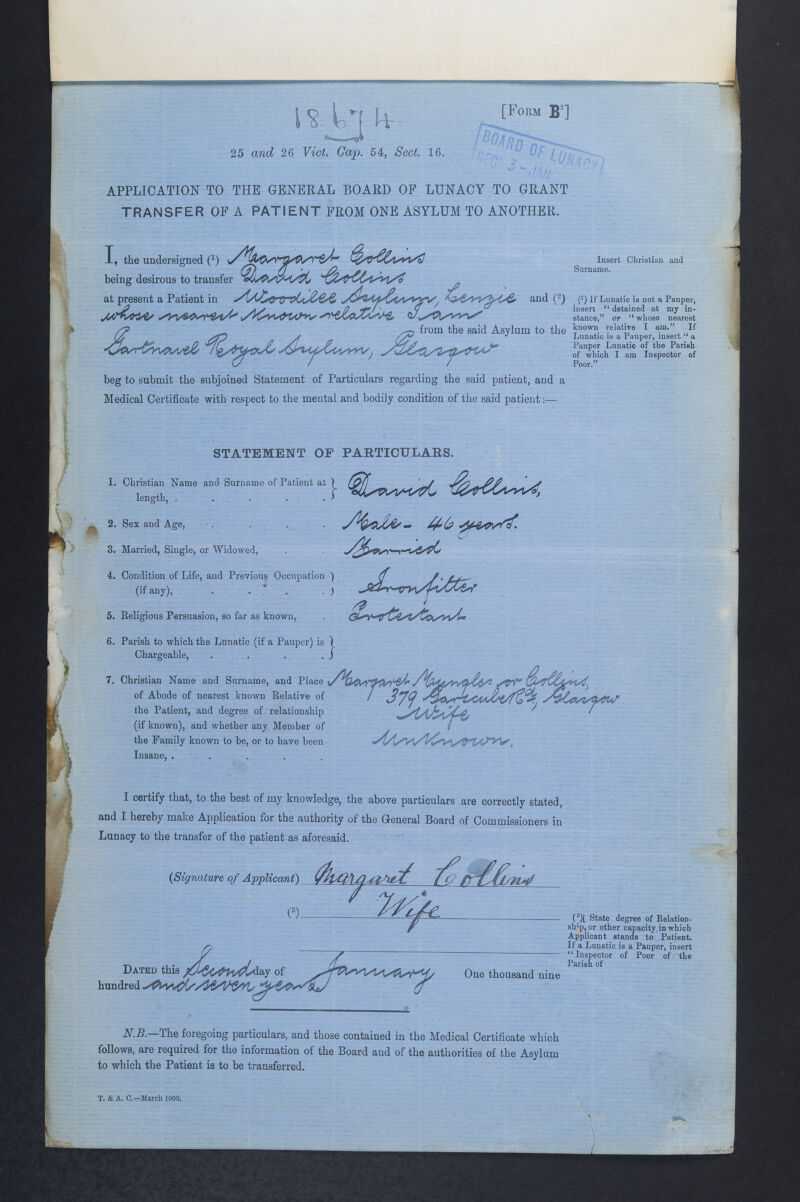 [FORM B²]
18.674.
BOARD OF LUNACY
RECD 3 - JAN
25 and 26 Vict. Cap. 54, Sect. 16.
APPLICATION TO THE GENERAL BOARD OF LUNACY TO GRANT
TRANSFER OF A PATIENT FROM ONE ASYLUM TO ANOTHER.
I, the undersigned (¹) Margaret Collins
Insert Christian and
Surname.
being desirous to transfer David Collins
at present a Patient in Woodilee Asylum, Lenzie and (²)
whose nearest known relative I am
from the said Asylum to the
Gartnavel Royal Asylum, Glasgow
(²) If Lunatic is not a Pauper,
insert "detained at my in-
stance," or "whose nearest
known relative I am." If
Lunatic is a Pauper, insert "a
Pauper Lunatic of the Parish
of which I am Inspector of
Poor."
beg to submit the subjoined Statement of Particulars regarding the said patient, and a
Medical Certificate with respect to the mental and bodily condition of the said patient:—
STATEMENT OF PARTICULARS.
1. Christian Name and Surname of Patient at
length, . . . . . } David Collins,
2. Sex and Age, . . . Male - 46 years.
3. Married, Single, or Widowed, . . Married
4. Condition of Life, and Previous Occupation
(if any), . . . . } Ironfitter
5. Religious Persuasion, so far as known, . Protestant
6. Parish to which the Lunatic (if a Pauper) is
Chargeable, . . . . }
7. Christian Name and Surname, and Place Margaret or Collins,
of Abode of nearest known Relative of 379 Garscube Rd, Glasgow
the Patient, and degree of relationship Wife
(if known), and whether any Member of
the Family known to be, or to have been Unknown.
Insane, . . . . .
I certify that, to the best of my knowledge, the above particulars are correctly stated,
and I hereby make Application for the authority of the General Board of Commissioners in
Lunacy to the transfer of the patient as aforesaid.
(Signature of Applicant) Margaret Collins
(³) Wife
(³)( State degree of Relation-
ship, or other capacity in which
Applicant stands to Patient.
If a Lunatic is a Pauper, insert
"Inspector of Poor of the
Parish of
DATED this Second day of January One thousand nine
hundred and seven years
N.B.—The foregoing particulars, and those contained in the Medical Certificate which
follows, are required for the information of the Board and of the authorities of the Asylum
to which the Patient is to be transferred.
T. & A. C.—March 1900.